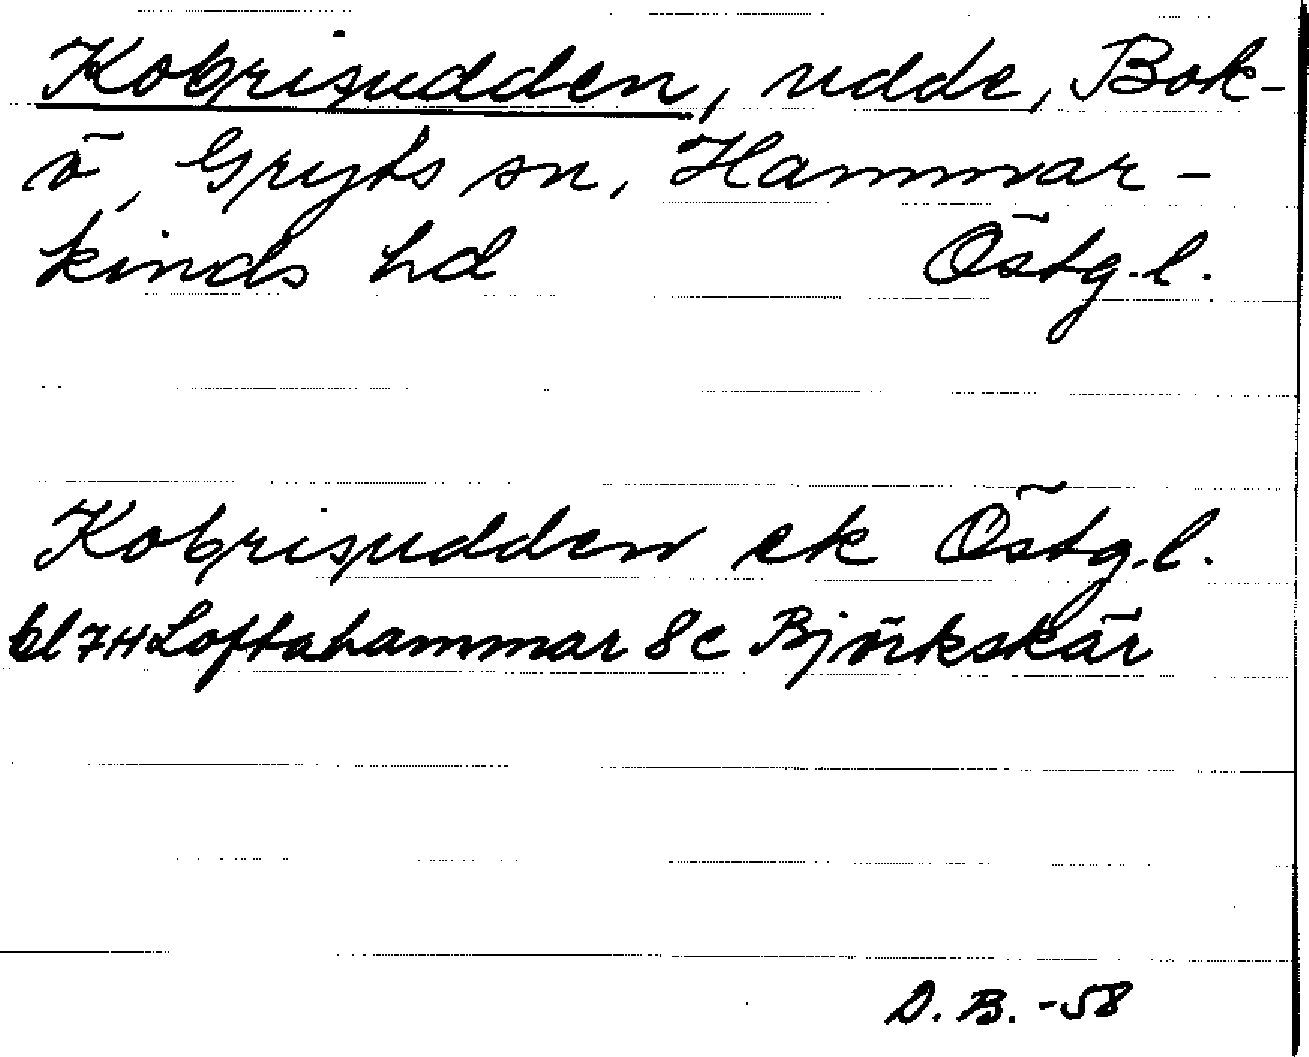 Kobrisudden, udde, Bok-
ö, Gryts sn, Hammar-
kinds hd Östg.l.
Kobrisudden ek Östg.l.
bl 7H Loftahammar 8c Björkskär
D. B. -58